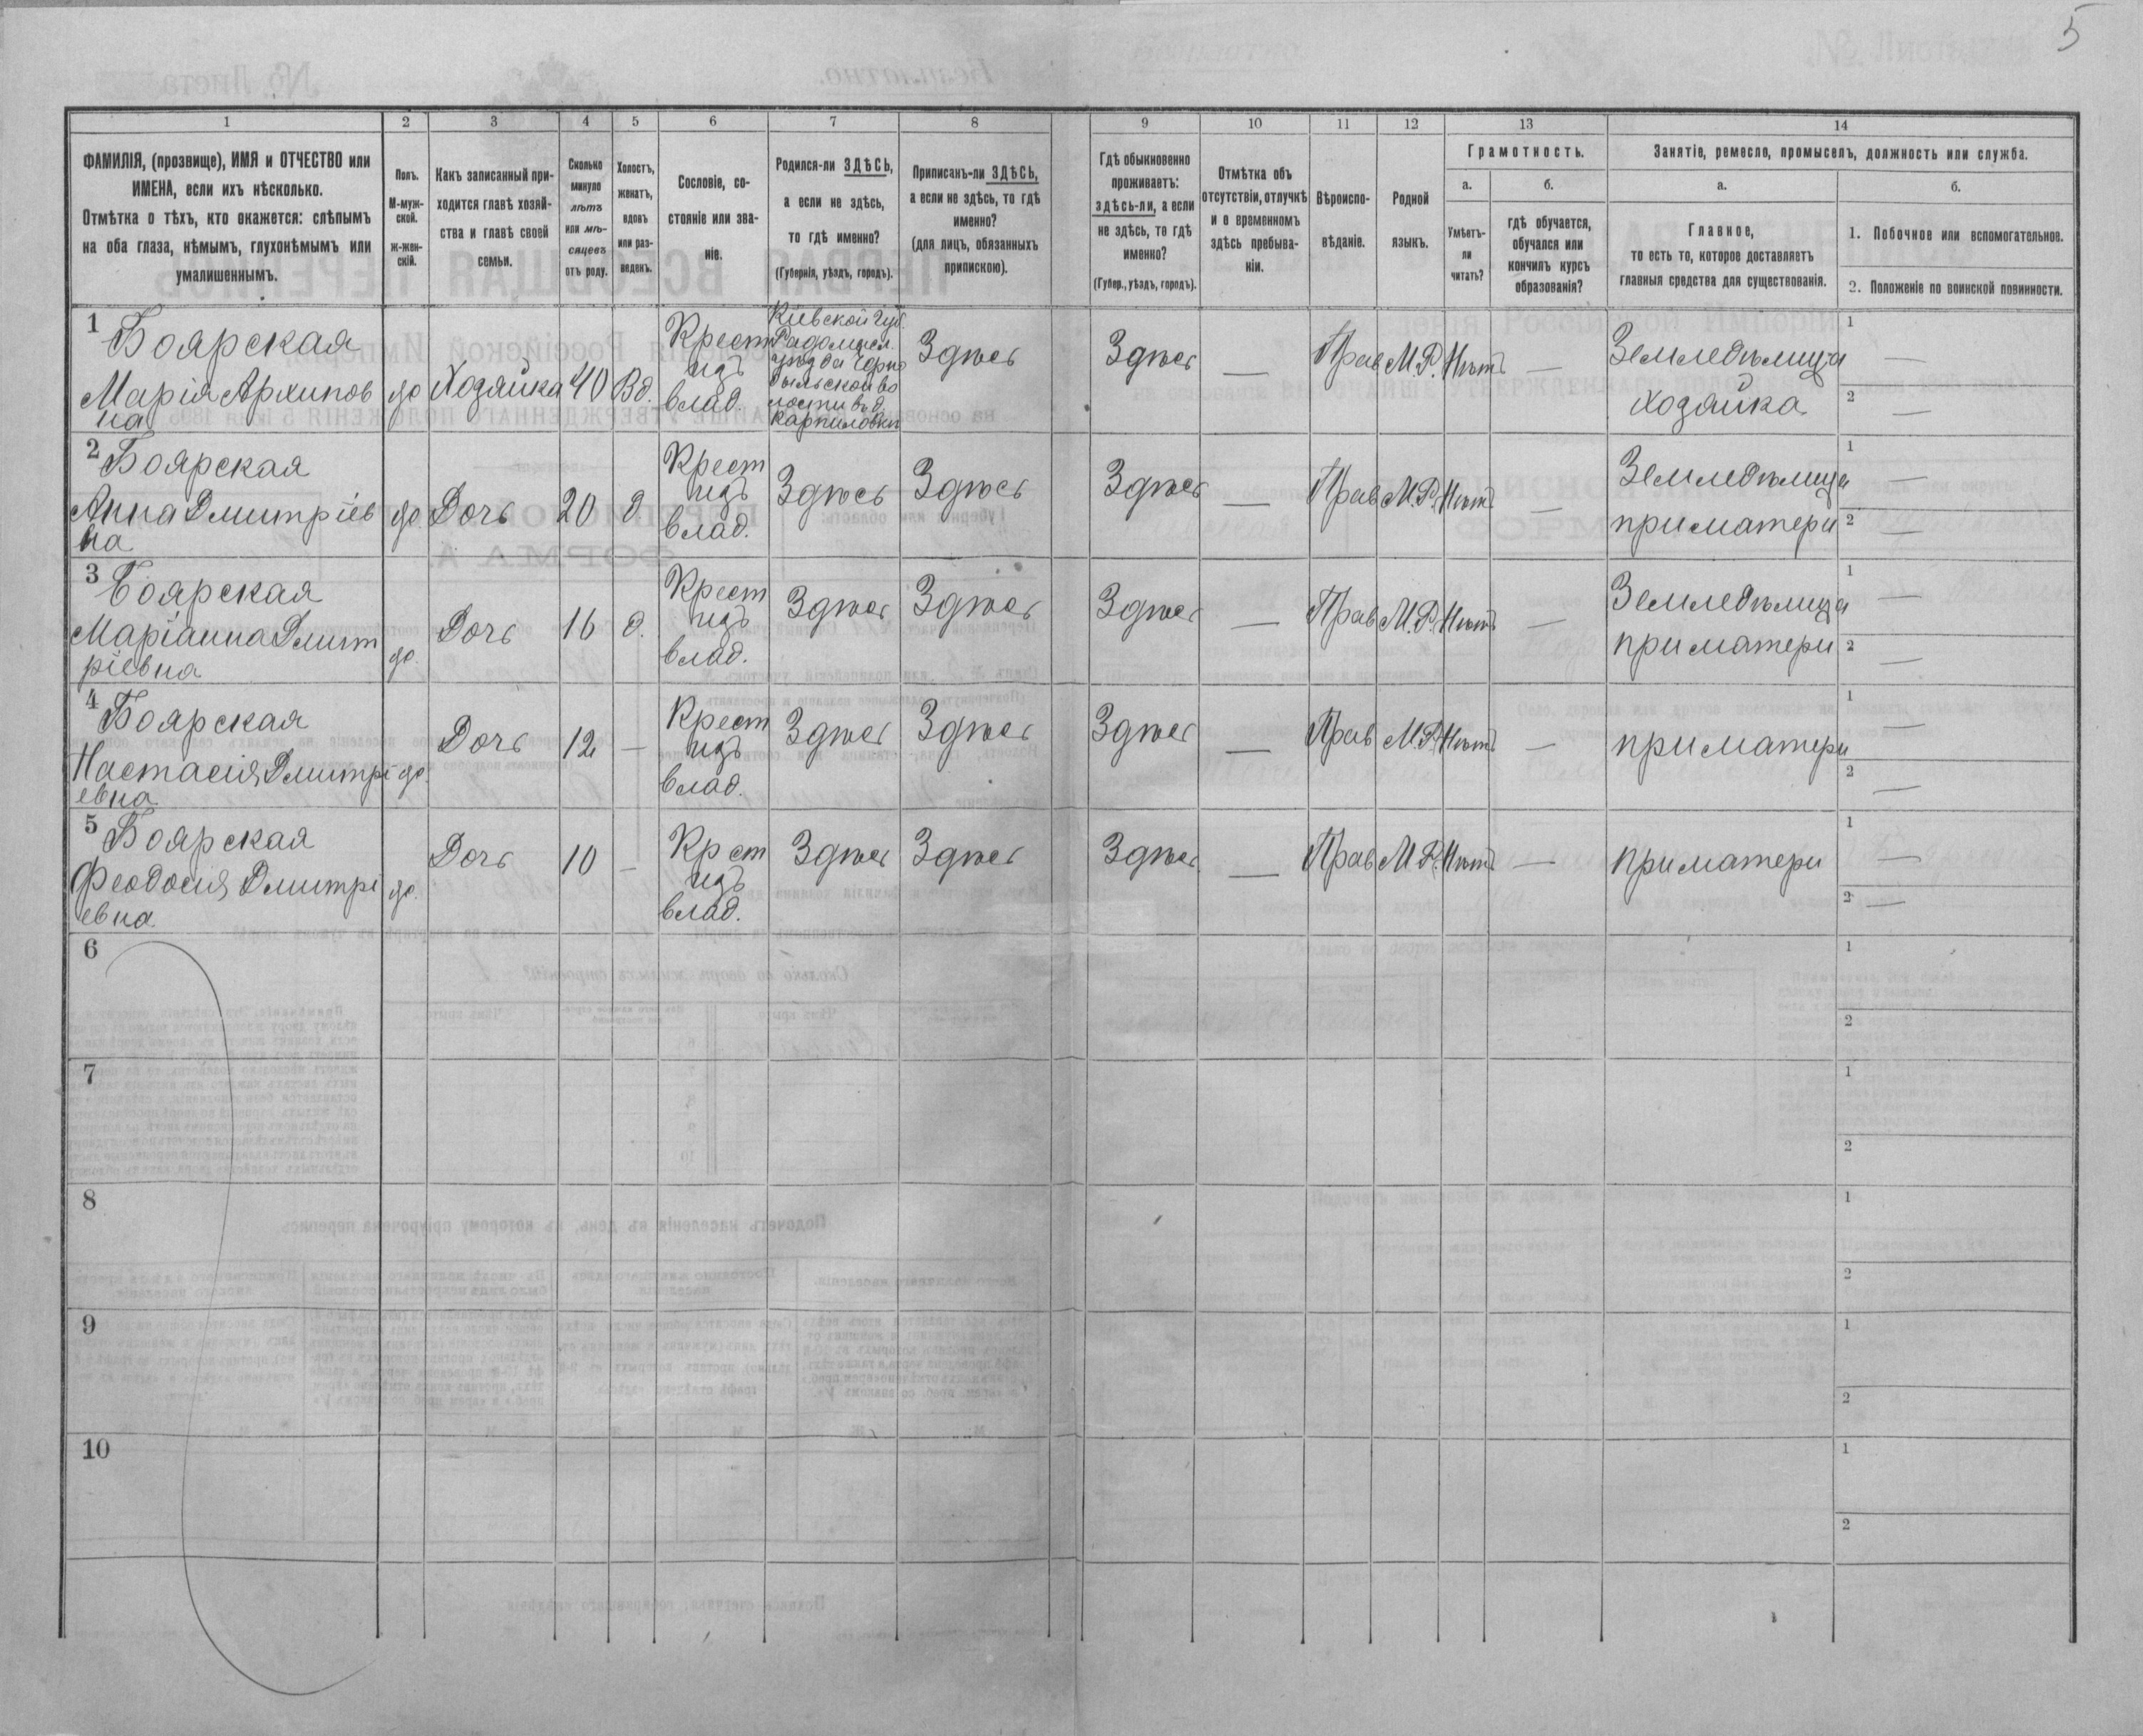 5
1 2 3 4 5 6 7 8 9 10 11 12 13 14
ФАМИЛІЯ, (прозвище), ИМЯ и ОТЧЕСТВО или
ИМЕНА, если ихъ нѣсколько.
Отмѣтка о тѣхъ, кто окажется: слѣпымъ
на оба глаза, нѣмымъ, глухонѣмымъ или
умалишеннымъ.
Полъ.
М-муж-
ской.
ж-жен-
скій.
Какъ записанный при-
ходится главѣ хозяй-
ства и главѣ своей
семьи.
Сколько
минуло
лѣтъ
или мѣ-
сяцевъ
отъ роду.
Холостъ,
женатъ,
вдовъ
или раз-
веденъ.
Сословіе, со-
стояніе или зва-
ніе.
Родился-ли ЗДѢСЬ,
а если не здѣсь,
то гдѣ именно?
(Губернія, уѣздъ, городъ).
Приписанъ-ли ЗДѢСЬ,
а если не здѣсь, то гдѣ
именно?
(для лицъ, обязанныхъ
припискою).
Гдѣ обыкновенно
проживаетъ:
здѣсь-ли, а если
не здѣсь, то гдѣ
именно?
(Губер., уѣздъ, городъ).
Отмѣтка объ
отсутствіи, отлучкѣ
и о временномъ
здѣсь пребыва-
ніи.
Вѣроиспо-
вѣданіе.
Родной
языкъ.
Грамотность.
а.
Умѣетъ-
ли
читать?
б.
гдѣ обучается,
обучался или
кончилъ курсъ
образованія?
Занятіе, ремесло, промыселъ, должность или служба.
а.
Главное,
то есть то, которое доставляетъ
главныя средства для существованія.
б.
1. Побочное или вспомогательное.
2. Положеніе по воинской повинности.
1 Боярская
Марія Архипов
на
ж
Хозяйка
40
Вд.
Крест
изъ
влад.
Кіевской Губ.
Радомысл.
уѣзда Чорно
быльской во
лости въ д.
Карпиловки
Здѣсь
Здѣсь
—
Прав
М.Р.
Нѣтъ
—
Земледѣлица
Хозяйка
1 —
2 —
2 Боярская
Анна Дмитріев
на
ж
Дочь
20
д
Крест
изъ
влад.
Здѣсь
Здѣсь
Здѣсь
—
Прав
М.Р.
Нѣтъ
—
Земледѣлица
при матери
1 —
2 —
3 Боярская
Маріанна Дмит
ріевна
ж.
Дочь
16
д.
Крест
изъ
влад.
Здѣсь
Здѣсь
Здѣсь
—
Прав
М.Р.
Нѣтъ
—
Земледѣлица
при матери
1 —
2 —
4 Боярская
Настасія Дмитрі
евна
ж.
Дочь
12
—
Крест
изъ
влад.
Здѣсь
Здѣсь
Здѣсь
—
Прав
М.Р.
Нѣтъ
—
при матери
1 —
2 —
5 Боярская
Феодосія Дмитрі
евна
ж.
Дочь
10
—
Крест
изъ
влад.
Здѣсь
Здѣсь
Здѣсь
—
Прав
М.Р.
Нѣтъ
—
при матери
1 —
2 —
6
1
2
7
1
2
8
1
2
9
1
2
10
1
2